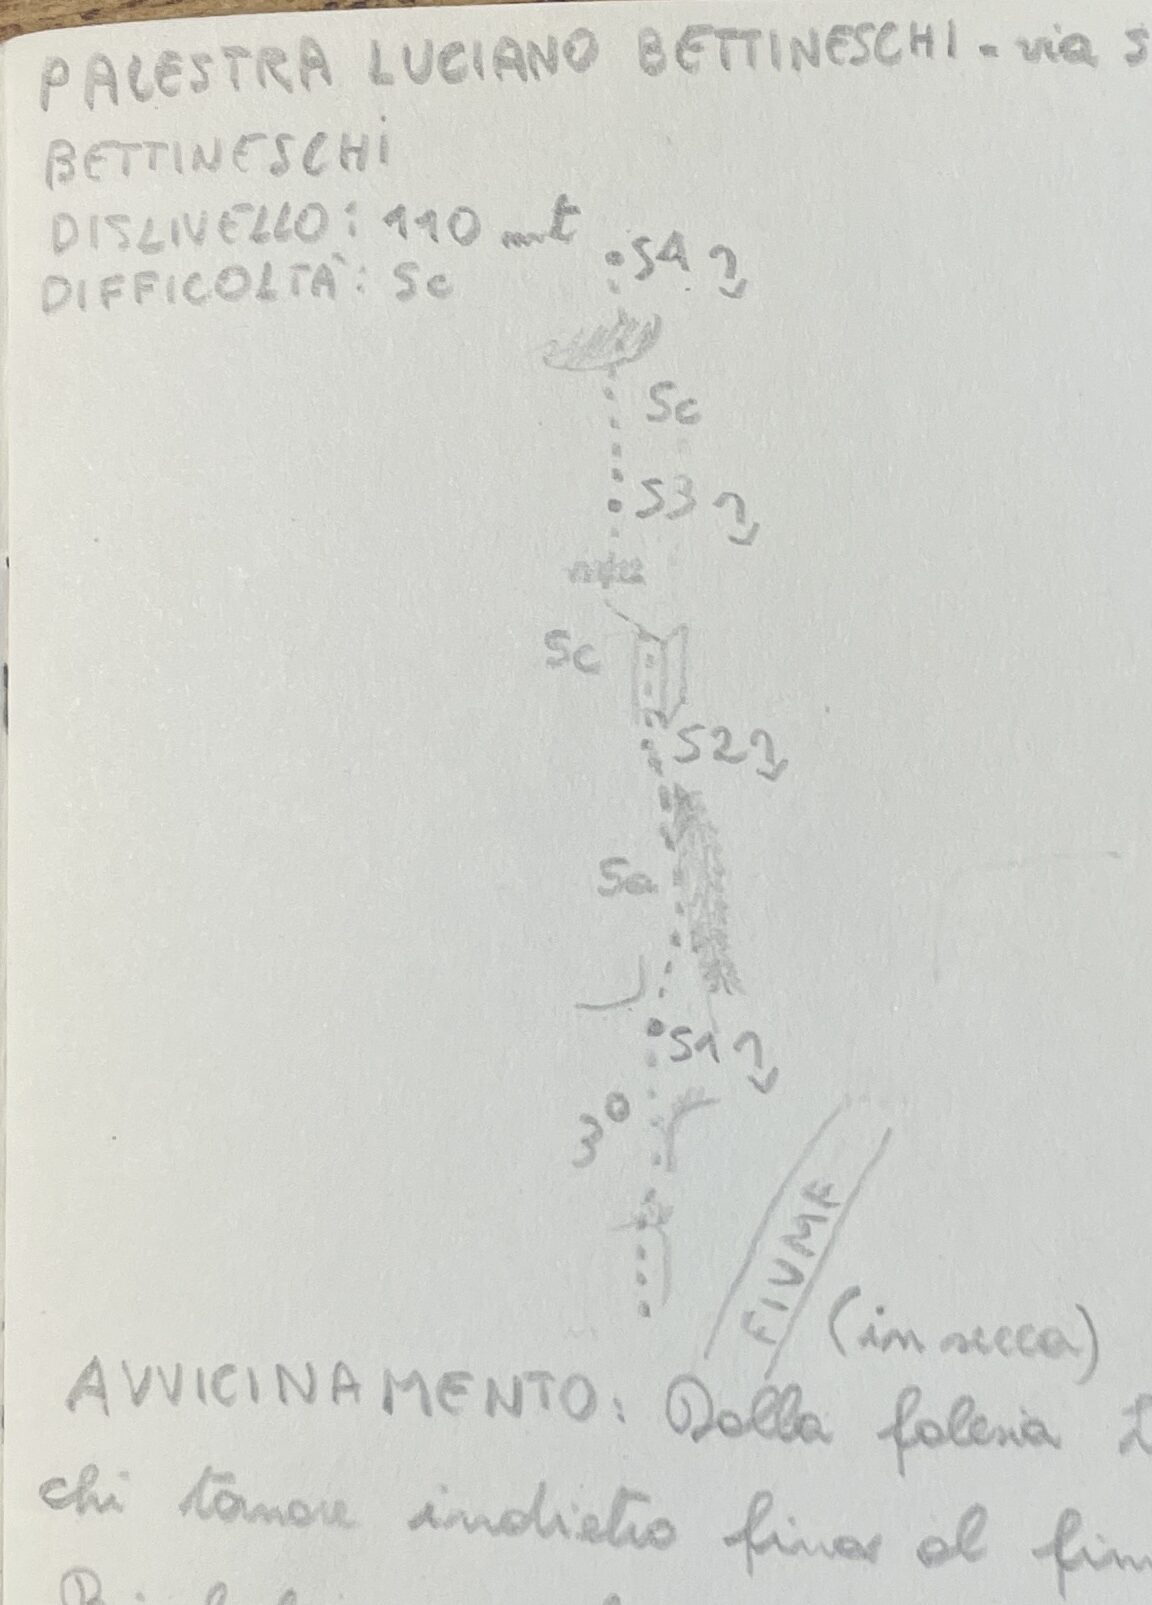 PALESTRA LUCIANO BETTINESCHI - via S
BETTINESCHI
DISLIVELLO: 110 mt
DIFFICOLTÀ: 5c
S4
5c
S3
5c
S2
5a
S1
3°
FIUME
(in secca)
AVVICINAMENTO: Dalla falesia
chi tornare indietro fino al fium